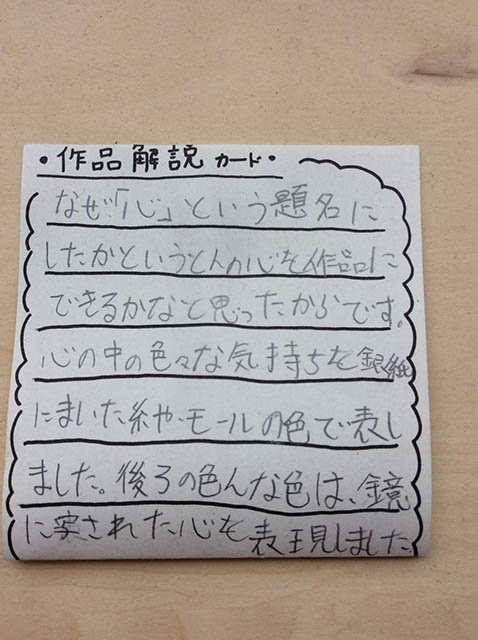 ・作品解説カード・
なぜ「心」という題名に
したかというと人の心を作品に
できるかなと思ったからです。
心の中の色々な気持ちを銀紙
にまいた糸やモールの色で表し
ました。後ろの色んな色は、鏡
に写された心を表現しました